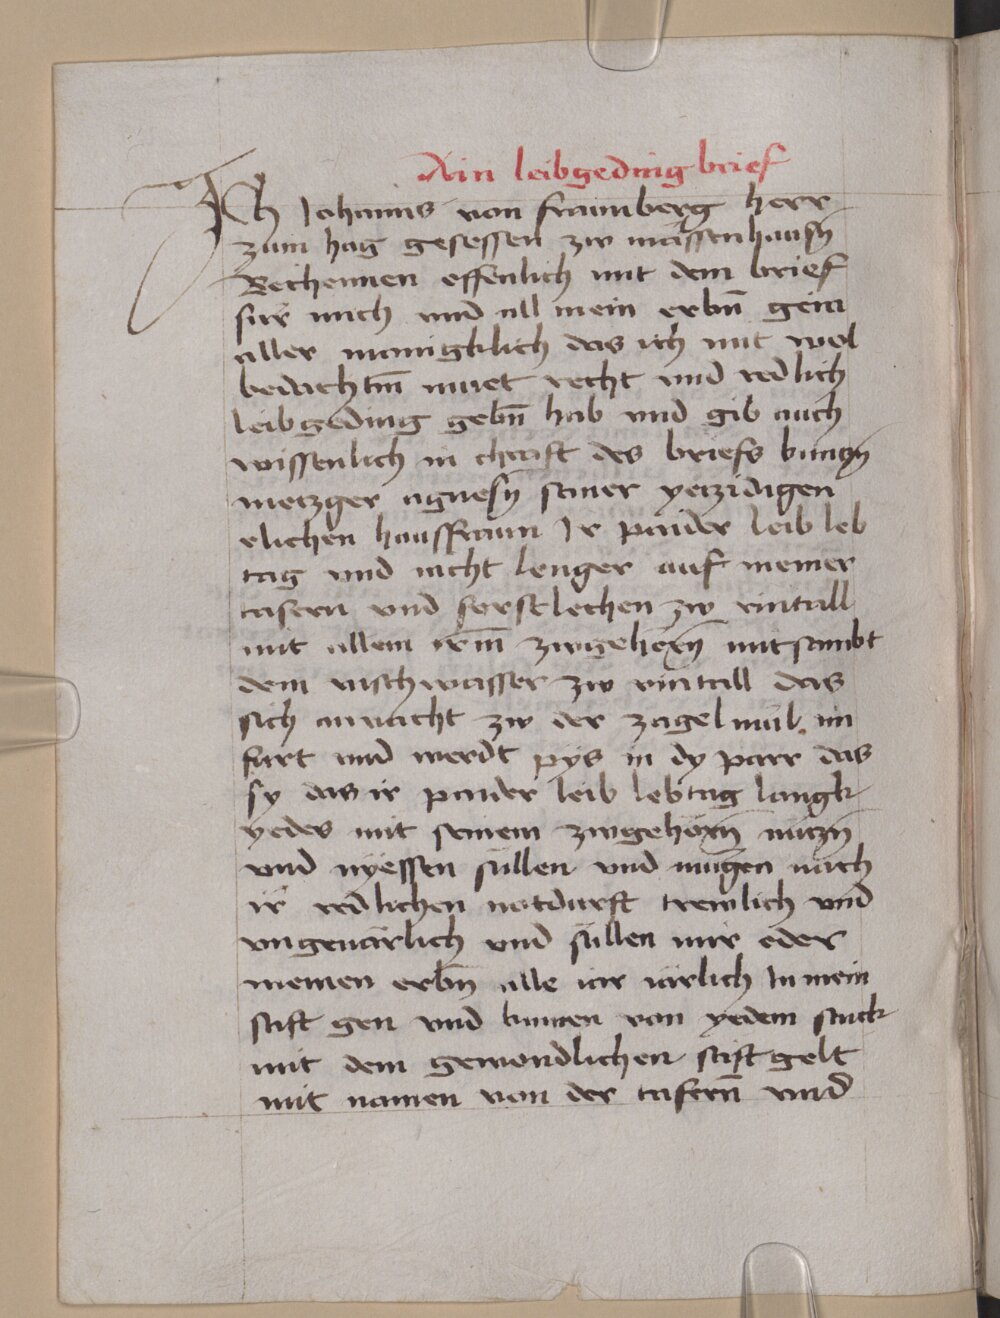 Ain leibgeding brief
Ich Johanns von fraunberg herr
zum hag gesessen zw mässenhausn̄
Bechennen offenlich mit dem brief
für mich vnd all mein erbn̄ gein
aller manigklich das ich mit wol
bedachtm̄ muet recht vnd redlich
leibgeding gebn̄ hab vnd gib auch
wissenlich in chraft des briefs
metzger agnesn̄ seiner yetzidigen
elichen hausfraun Ir paider leib leb
tag vnd nicht lenger auf meiner
tafern vnd forstlechen zw vintall
mit allem irm̄ zwgehörn̄ mitsambt
dem vischwasser zw vintall das
sich anuächt zw der zagelmül im
furt vnd werdt pys in dy parr das
sy das ir paider leib lebtag langk
yedes mit seinem zwgehörn̄ nützn̄
vnd nyessen süllen vnd mügen nach
ir redlichen notdurft trewlich vnd
vngeuärlich vnd süllen mir oder
meinen erbn̄ alle iar iärlich In mein
stift gen vnd kumen von yedem stuck
mit dem gewondlichen stiftgelt
mit namen von der tafern̄ vnd